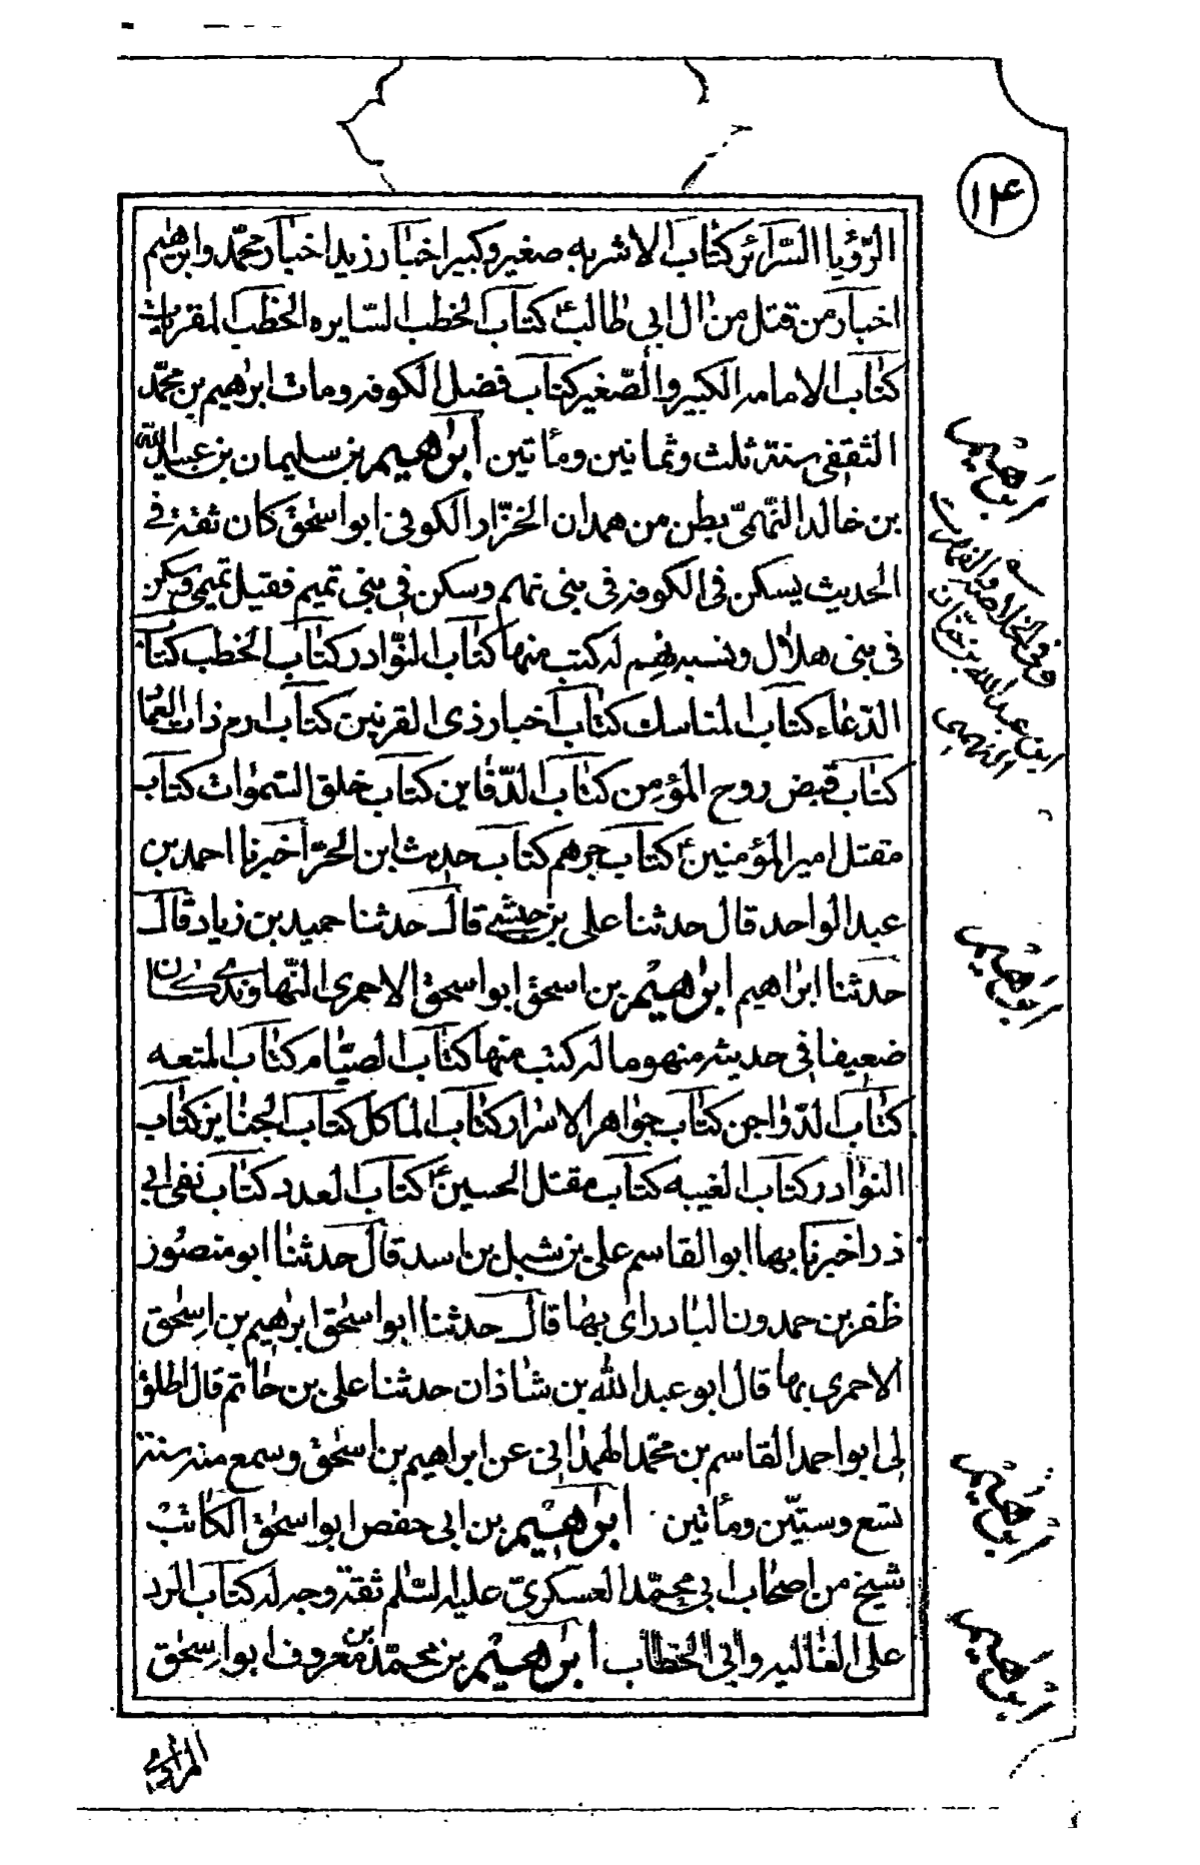 ١۴
الرّؤيا السّرائر كتاب الاشربه صغير وكبير اخبار زيد اخبار محمّد وابرهيم
اخبار من قتل من ال ابى طالبؑ كتاب الخطب السّايره الخطب المقريات
كتاب الامامه الكبير والصّغير كتاب فضل الكوفه ومات ابرهيم بن محمّد
الثقفى سنة ثلث وثمانين ومأتين ابرٰهيم بن سليمان بن عبيد الله
بن خالد النّهمىّ بطن من همدان الخزّاز الكوفى ابو اسحٰق كان ثقة فى
الحديث يسكن فى الكوفه فى بنى نهم وسكن فى بنى تميم فقيل تميمى وسكن
فى بنى هلال ونسبه نهم له كتب منها كتاب النّوادر كتاب الخطب كتاب
الدّعاء كتاب المناسك كتاب اخبار ذى القرنين كتاب ارم ذات العماد
كتاب قبض روح المؤمن كتاب الدّفاين كتاب خلق السّموات كتاب
مقتل امير المؤمنينؑ كتاب جرهم كتاب حديث ابن الحرّ أخبرنا احمد بن
عبد الواحد قال حدثنا على بن حبشى قال حدثنا حميد بن زياد قال
حدثنا ابراهيم ابرٰهيم بن اسحق ابو اسحق الاحمرى النّهاوندى كان
ضعيفا فى حديثه منهوما له كتب منها كتاب الصيّام كتاب المتعه
كتاب الدّواجن كتاب جواهر الاسرار كتاب الماكل كتاب الجنايز كتاب
النوادر كتاب الغيبه كتاب مقتل الحسينؑ كتاب العدد كتاب نفى ابى
ذر اخبرنا بها ابو القاسم على بن شبل بن اسد قال حدثنا ابو منصور
ظفر بن حمدون البادراى بها قال حدثنا ابو اسحٰق ابرٰهيم بن اسحٰق
الاحمرى بها قال ابو عبد اللّٰه بن شاذان حدثنا على بن حاتم قال اطلق
لى ابو احمد القاسم بن محمّد الهمدانى عن ابراهيم بن اسحٰق وسمع منه سنة
تسع وستيّن ومأتين ابرٰهيم بن ابى حفص ابو اسحٰق الكاتب
شيخ من اصحاب ابى محمّد العسكرىّ عليه السّلم ثقة وجه له كتاب الرد
على الغاليه وابى الخطاب ابرٰهيم بن محمّد بن معروف ابو اسحٰق
المزارى
ابرٰهيم
وفى الخلاصة والفهرست
ابن عبدالله بن حيّان
النهمى
ابرٰهيم
ابرٰهيم
ابرٰهيم